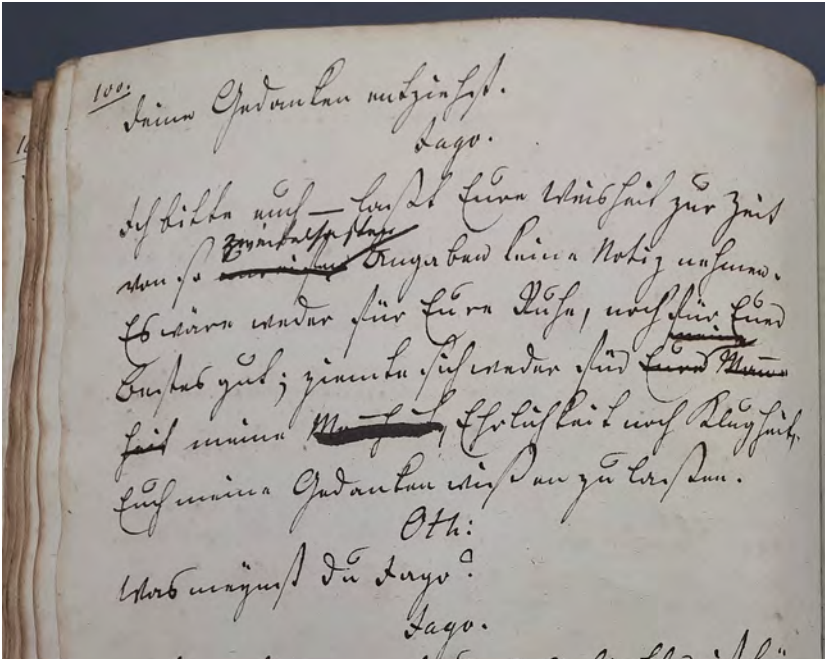 100.
deine Gedanken entziehst.
Jago.
Ich bitte euch — laßt Eure Weisheit zur Zeit
zweifelhaften
von so Angaben keine Notiz nehmen.
Es wäre weder für Eure Ruhe, noch für Euer
meine
Bestes gut; ziemte sich weder für Eure Mann
heit meine Mannheit, Ehrlichkeit noch Klugheit,
Euch meine Gedanken wißen zu laßen.
Oth:
Was meynst du Jago?
Jago.